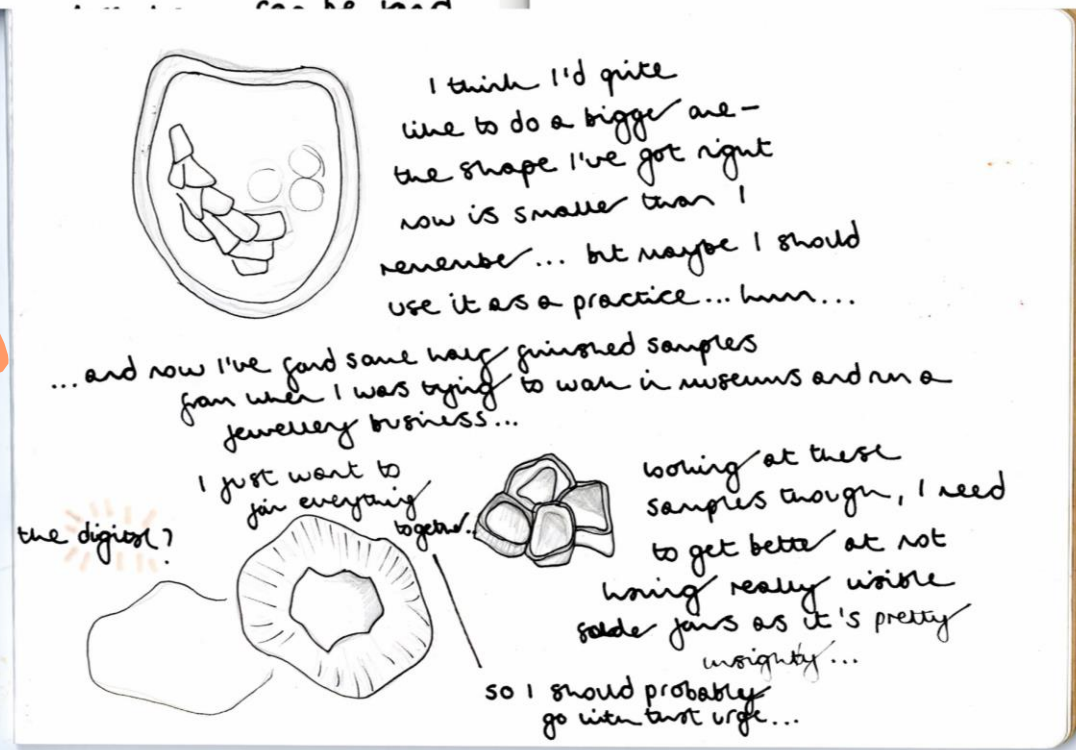 can be had
I think I'd quite
like to do a bigger one –
the shape I've got right
now is smaller than I
remember... but maybe I should
use it as a practice... hmm...
...and now I've found some half finished samples
from when I was trying to work in museums and run a
jewellery business...
I just want to
join everything
together..
the digital?
looking at these
samples though, I need
to get better at not
having really visible
solder joins as it's pretty
unsightly...
so I should probably
go with that urge...